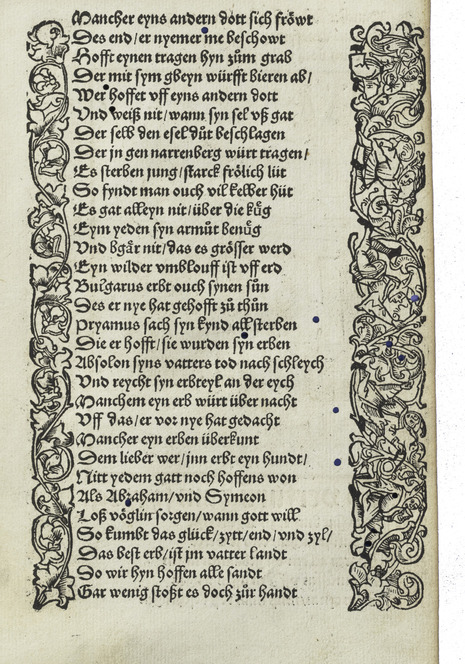 Mancher eyns andern dott sich fröwt
Des end/er nyemer me beschowt
Hofft eynen tragen hyn zům grab
Der mit sym gbeyn würfft bieren ab/
Wer hoffet vff eyns andern dott
Vnd weiß nit/wann syn sel vß gat
Der selb den esel důt beschlagen
Der jn gen narrenberg würt tragen/
Es sterben jung/starck frölich lüt
So fyndt man ouch vil kelber hüt
Es gat alleyn nit/über die kůg
Eym yeden syn armůt benůg
Vnd bgär nit/das es grösser werd
Eyn wilder vmblouff ist vff erd
Bulgarus erbt ouch synen sůn
Des er nye hat gehofft zů thůn
Pryamus sach syn kynd all sterben
Die er hofft/sie wurden syn erben
Absolon syns vatters tod nach schleych
Vnd reycht syn erbteyl an der eych
Manchem eyn erb würt über nacht
Vff das/er vor nye hat gedacht
Mancher eyn erben überkunt
Dem lieber wer/jnn erbt eyn hundt/
Nitt yedem gatt noch hoffens won
Als Abraham/vnd Symeon
Loß vöglin sorgen/wann gott will
So kumbt das glück/zytt/end/vnd zyl/
Das best erb/ist jm vatter landt
Do wir hyn hoffen alle sandt
Gar wenig stoßt es doch zůr handt